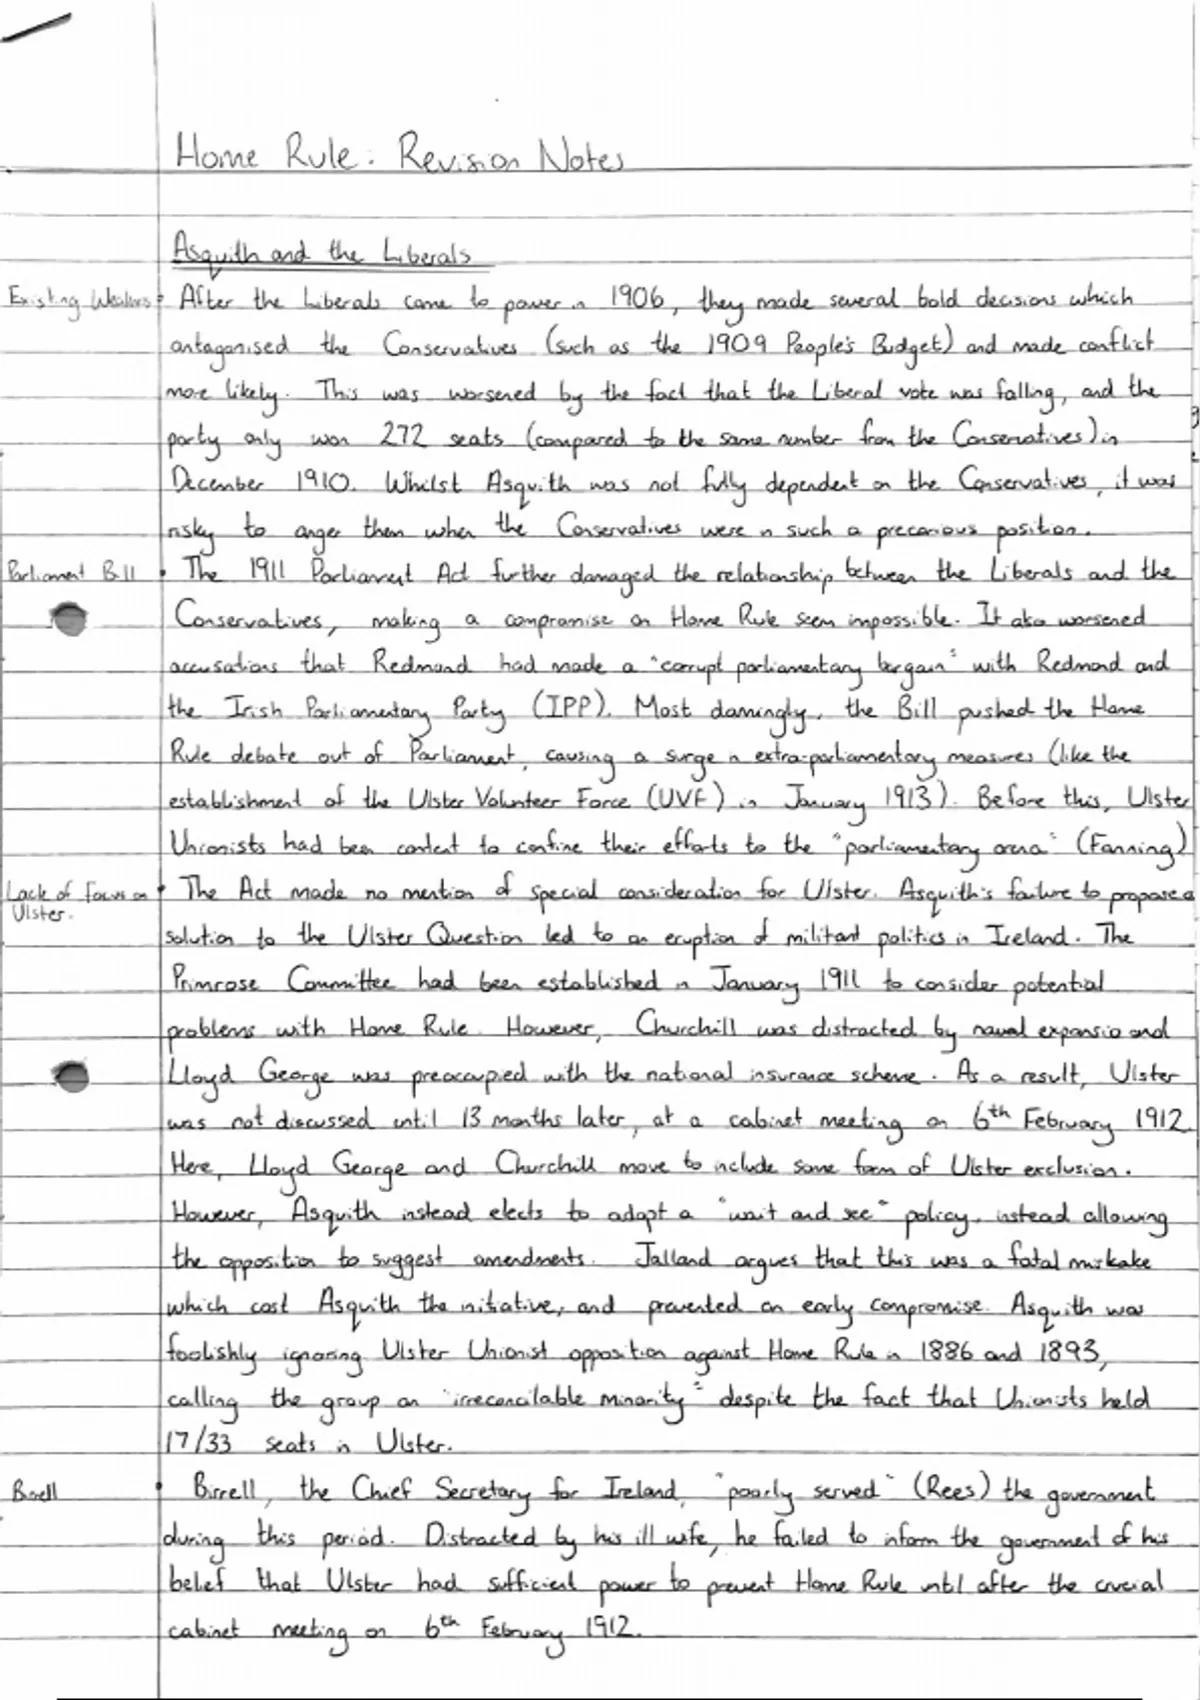 Home Rule: Revision Notes
Asquith and the Liberals
Existing Weakness
• After the Liberals came to power in 1906, they made several bold decisions which
antagonised the Conservatives (such as the 1909 People's Budget) and made conflict
more likely. This was worsened by the fact that the Liberal vote was falling, and the
party only won 272 seats (compared to the same number from the Conservatives) in
December 1910. Whilst Asquith was not fully dependent on the Conservatives, it was
risky to anger them when the Conservatives were in such a precarious position.
Parliament Bill
• The 1911 Parliament Act further damaged the relationship between the Liberals and the
Conservatives, making a compromise on Home Rule seem impossible. It also worsened
accusations that Redmond had made a "corrupt parliamentary bargain" with Redmond and
the Irish Parliamentary Party (IPP). Most damingly, the Bill pushed the Home
Rule debate out of Parliament, causing a surge in extra-parliamentary measures (like the
establishment of the Ulster Volunteer Force (UVF) in January 1913). Before this, Ulster
Unionists had been content to confine their efforts to the "parliamentary arena" (Fanning)
Lack of Focus on
Ulster.
• The Act made no mention of special consideration for Ulster. Asquith's failure to propose a
solution to the Ulster Question led to an eruption of militant politics in Ireland. The
Primrose Committee had been established in January 1911 to consider potential
problems with Home Rule. However, Churchill was distracted by naval expansio and
Lloyd George was preoccupied with the national insurance scheme. As a result, Ulster
was not discussed until 13 months later, at a cabinet meeting on 6th February 1912.
Here, Lloyd George and Churchill move to include some form of Ulster exclusion.
However, Asquith instead elects to adopt a "wait and see" policy, instead allowing
the opposition to suggest amendments. Jalland argues that this was a fatal mistake
which cost Asquith the initiative, and prevented an early compromise. Asquith was
foolishly ignoring Ulster Unionist opposition against Home Rule in 1886 and 1893,
calling the group an "irreconcilable minority" despite the fact that Unionists held
17/33 seats in Ulster.
Birrell
• Birrell, the Chief Secretary for Ireland, "poorly served" (Rees) the government
during this period. Distracted by his ill wife, he failed to inform the government of his
belief that Ulster had sufficient power to prevent Home Rule until after the crucial
cabinet meeting on 6th February 1912.